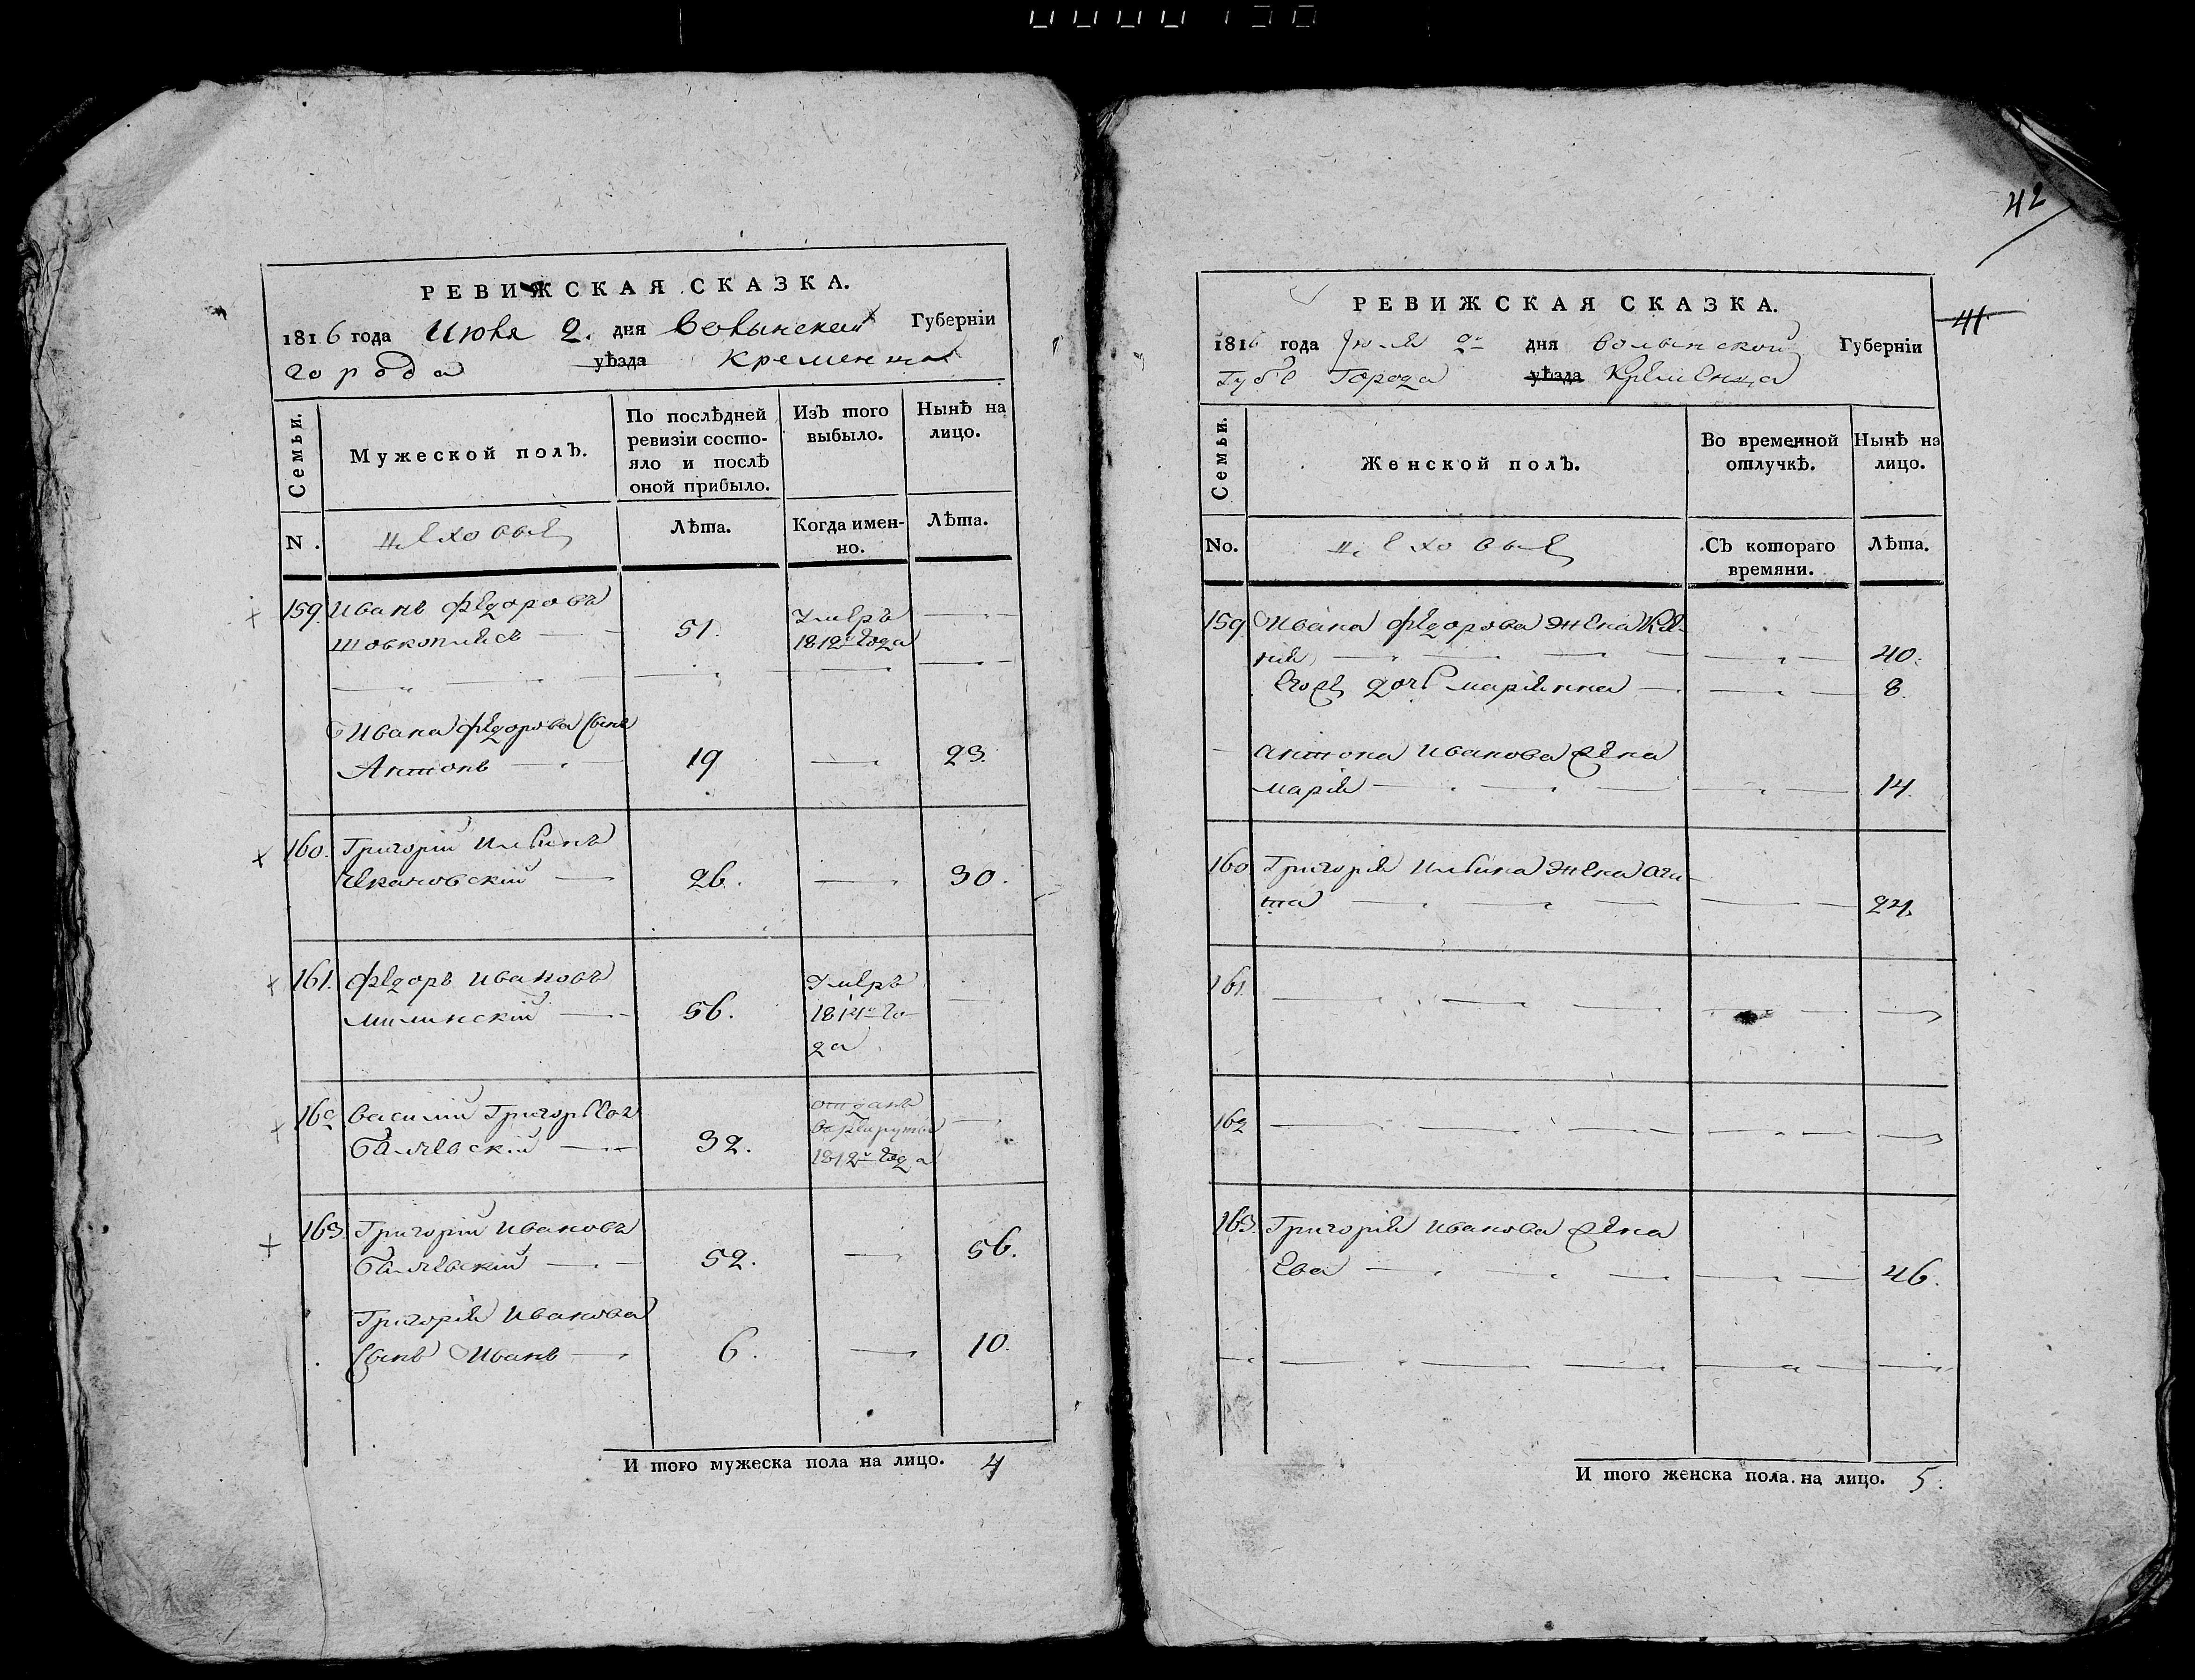 РЕВИЖСКАЯ СКАЗКА.
1816 года Июня 2. дня Волынской Губерніи
города уѣзда Кременца
Семьи.
Мужеской полъ.
По послѣдней ревизіи состо-
яло и послѣ
оной прибыло.
Изъ того
выбыло.
Нынѣ на
лицо.
N.
цеховые
Лѣта.
Когда имен-
но.
Лѣта.
159. Иванъ Федоровъ
51.
Умеръ
1812го Года
Ивана Федорова Сынъ
Антонъ 19 23.
160. Григорій Ильинъ
Чекановскій 26. 30.
161. Федоръ Ивановъ
Милинскій 56.
Умеръ
1814го Го-
да
162 Василий Григорьевъ
32.
отданъ
в рекруты
1812го Года
163 Григорій Ивановъ
52. 56.
Григорія Иванова
Сынъ Иванъ 6. 10.
И того мужеска пола на лицо. 4
42
41
РЕВИЖСКАЯ СКАЗКА.
1816 года дня Волынской Губерніи
Города уѣзда Кременца
Семьи.
Женской полъ.
Во временной
отлучкѣ.
Нынѣ на
лицо.
No.
цеховые
Съ котораго
времяни.
Лѣта.
159 Ивана Федорова Жена
40.
Его дочь Маріянна 8.
Антона Иванова Жена
Марія 14.
160 Григорія Ильина Жена Ага-
та 24.
161.
162
163. Григорія Иванова Жена
Ева 46.
И того женска пола на лицо. 5.